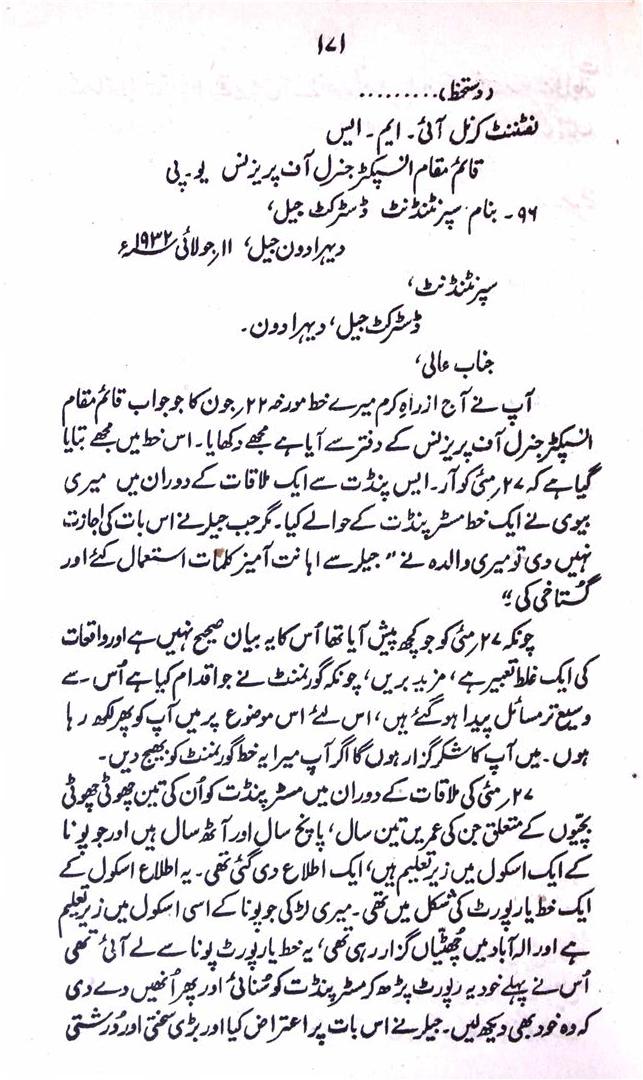 ۱۷۱
(دستخط).........
لفٹننٹ کرنل آئی۔ ایم۔ ایس
قائم مقام انسپکٹر جنرل آف پریزنس یو۔ پی
۹۶۔ بنام سپرنٹنڈنٹ ڈسٹرکٹ جیل،
دیہرادون جیل، ۱۱؍جولائی ۱۹۳۲ء
سپرنٹنڈنٹ،
ڈسٹرکٹ جیل، دیہرادون۔
جناب عالی،
آپ نے آج ازراہِ کرم میرے خط مورخہ ۲۲؍جون کا جو جواب قائم مقام
انسپکٹر جنرل آف پریزنس کے دفتر سے آیا ہے مجھے دکھایا۔ اس خط میں مجھے بتایا
گیا ہے کہ ۲۷؍مئی کو آر۔ ایس پنڈت سے ایک ملاقات کے دوران میں میری
بیوی نے ایک خط مسٹر پنڈت کے حوالے کیا۔ مگر جب جیلر نے اس بات کی اجازت
نہیں دی تو میری والدہ نے ”جیلر سے اہانت آمیز کلمات استعمال کئے اور
گستاخی کی“
چونکہ ۲۷؍مئی کو جو کچھ پیش آیا تھا اُس کا یہ بیان صحیح نہیں ہے اور واقعات
کی ایک غلط تعبیر ہے، مزید بریں، چونکہ گورنمنٹ نے جو اقدام کیا ہے اُس سے
وسیع تر مسائل پیدا ہو گئے ہیں، اس لئے اس موضوع پر میں آپ کو پھر لکھ رہا
ہوں۔ میں آپ کا شکر گزار ہوں گا اگر آپ میرا یہ خط گورنمنٹ کو بھیج دیں۔
۲۷؍مئی کی ملاقات کے دوران میں مسٹر پنڈت کو اُن کی تین چھوٹی چھوٹی
بچیوں کے متعلق جن کی عمریں تین سال، پانچ سال اور آٹھ سال ہیں اور جو پونا
کے ایک اسکول میں زیر تعلیم ہیں، ایک اطلاع دی گئی تھی۔ یہ اطلاع اسکول کے
ایک خط یا رپورٹ کی شکل میں تھی۔ میری لڑکی جو پونا کے اسی اسکول میں زیر تعلیم
ہے اور الہ آباد میں چھٹیاں گزار رہی تھی، یہ خط یا رپورٹ پونا سے لے آئی تھی
اُس نے پہلے خود یہ رپورٹ پڑھ کر مسٹر پنڈت کو سُنائی اور پھر اُنھیں دے دی
کہ وہ خود بھی دیکھ لیں۔ جیلر نے اس بات پر اعتراض کیا اور بڑی سختی اور درشتی